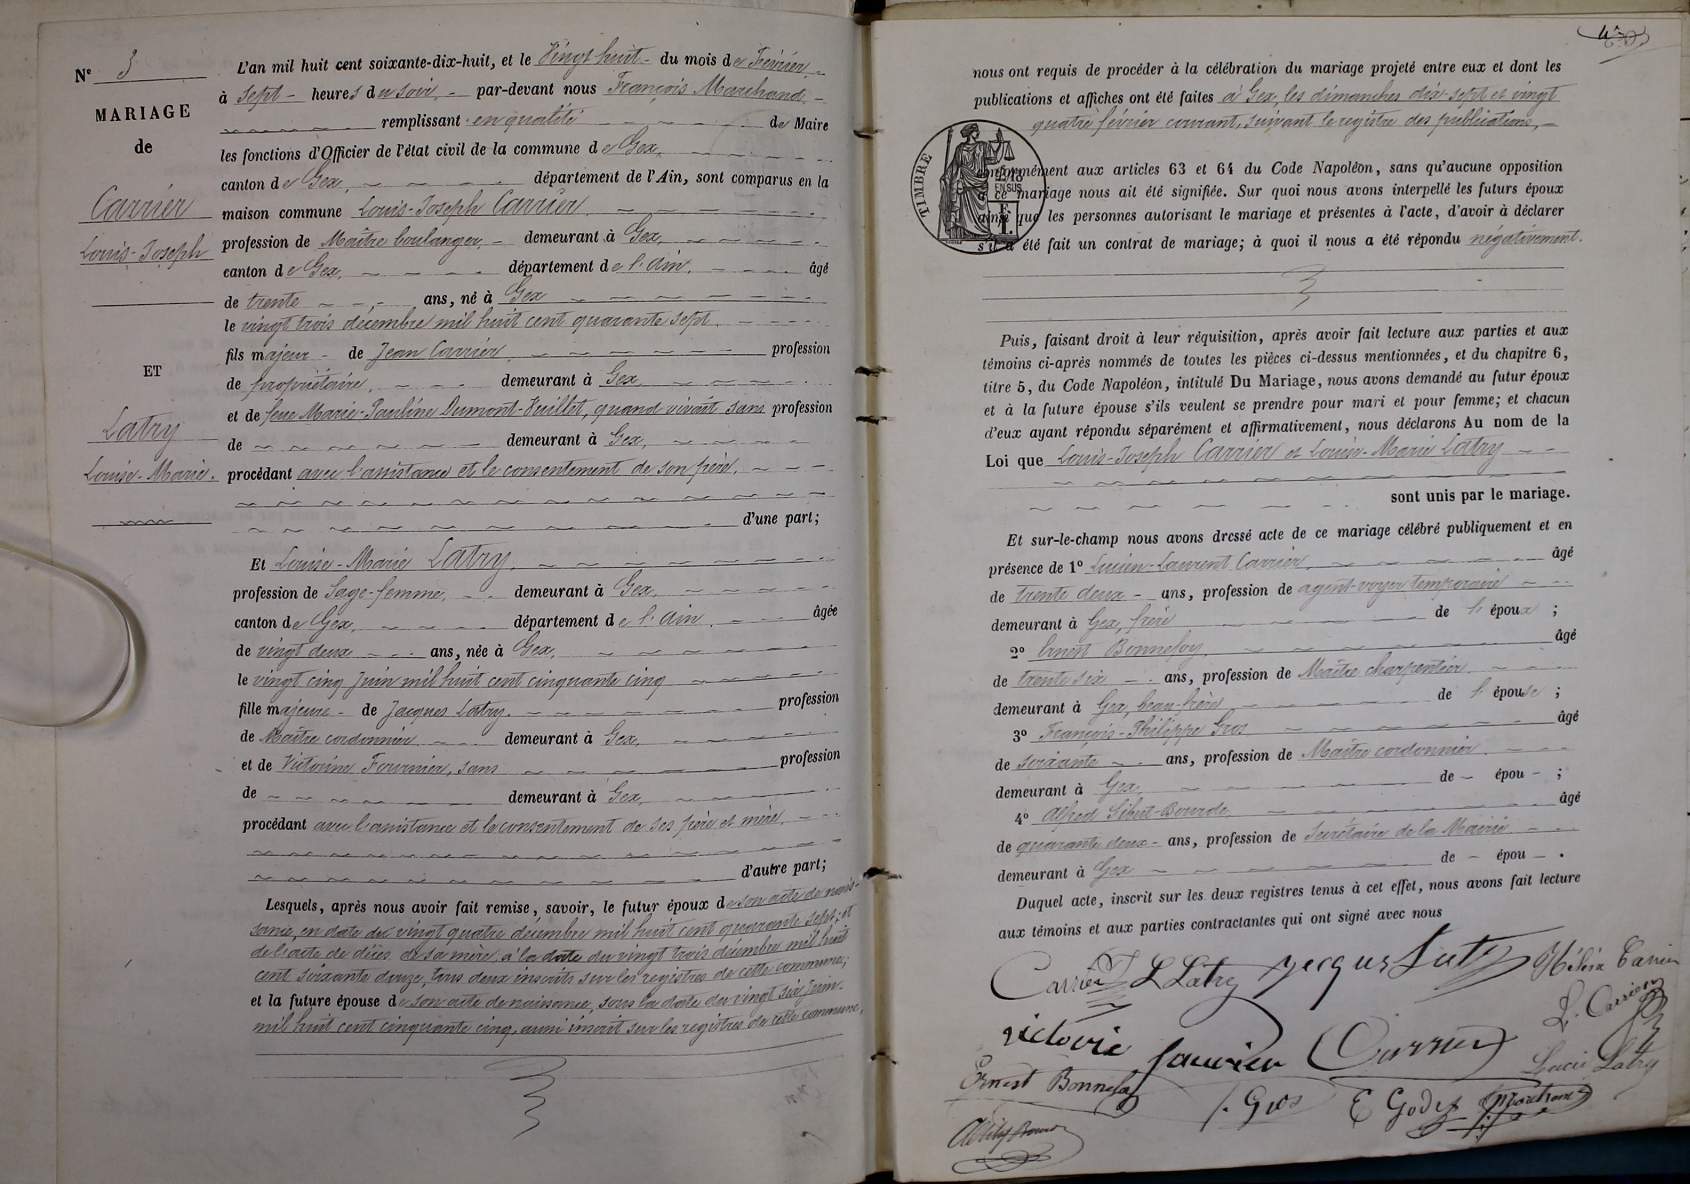 N° 3
MARIAGE
de
Carrier
Louis-Joseph
ET
Latry
Louise-Marie.
L'an mil huit cent soixante-dix-huit, et le Vingt huit du mois de Février
à Sept heures du soir, par-devant nous François Marchand,
remplissant en qualité de Maire
les fonctions d'Officier de l'état civil de la commune de Gex,
canton de Gex, département de l'Ain, sont comparus en la
maison commune Louis-Joseph Carrier
profession de Maître boulanger, demeurant à Gex,
canton de Gex, département de l'Ain, âgé
de trente ans, né à Gex
le vingt trois décembre mil huit cent quarante sept,
fils majeur de Jean Carrier, profession
de propriétaire, demeurant à Gex
et de feue Marie-Pauline Dumont-Vuillet, quand vivait sans profession
de demeurant à Gex,
procédant avec l'assistance et le consentement de son père,
d'une part;
Et Louise-Marie Latry,
profession de Sage-femme, demeurant à Gex,
canton de Gex, département de l'Ain, âgée
de vingt deux ans, née à Gex,
le vingt cinq Juin mil huit cent cinquante cinq
fille majeure de Jacques Latry, profession
de Maître cordonnier demeurant à Gex,
et de Victorine Fournier, sans profession
de demeurant à Gex,
procédant avec l'assistance et le consentement de ses père et mère,
d'autre part;
Lesquels, après nous avoir fait remise, savoir, le futur époux de son acte de nais-
sance, en date du vingt quatre décembre mil huit cent quarante sept; et
de l'acte de décès de sa mère, à la date du vingt trois décembre mil huit
cent soixante douze, tous deux inscrits sur les registres de cette commune;
et la future épouse de son acte de naissance, sous la date du vingt six juin
mil huit cent cinquante cinq, aussi inscrit sur les registres de cette commune,
4
nous ont requis de procéder à la célébration du mariage projeté entre eux et dont les
publications et affiches ont été faites à Gex, les dimanches dix-sept et vingt
quatre février courant, suivant le registre des publications,
TIMBRE
conformément aux articles 63 et 64 du Code Napoléon, sans qu'aucune opposition
à ce mariage nous ait été signifiée. Sur quoi nous avons interpellé les futurs époux
ainsi que les personnes autorisant le mariage et présentes à l'acte, d'avoir à déclarer
s'il a été fait un contrat de mariage; à quoi il nous a été répondu négativement.
Puis, faisant droit à leur réquisition, après avoir fait lecture aux parties et aux
témoins ci-après nommés de toutes les pièces ci-dessus mentionnées, et du chapitre 6,
titre 5, du Code Napoléon, intitulé Du Mariage, nous avons demandé au futur époux
et à la future épouse s'ils veulent se prendre pour mari et pour femme; et chacun
d'eux ayant répondu séparément et affirmativement, nous déclarons Au nom de la
Loi que Louis-Joseph Carrier et Louise-Marie Latry
sont unis par le mariage.
Et sur-le-champ nous avons dressé acte de ce mariage célébré publiquement et en
présence de 1° Lucien-Laurent Carrier, âgé
de trente deux ans, profession de agent-voyer temporaire
demeurant à Gex, frère de l'époux ;
2° Ernest Bonnefoy, âgé
de trente six ans, profession de Maître charpentier
demeurant à Gex, beau-frère de l'épouse ;
3° François-Philippe Gros âgé
de soixante ans, profession de Maître cordonnier
demeurant à Gex, de épou ;
4° Alfred Sibut-Bourde âgé
de quarante deux ans, profession de Secrétaire de la Mairie
demeurant à Gex de épou .
Duquel acte, inscrit sur les deux registres tenus à cet effet, nous avons fait lecture
aux témoins et aux parties contractantes qui ont signé avec nous
Carrier L Latry jacques Latry
L. Carrier
victorie fournier Carrier Lucie Latry
Ernest Bonnefoy f. Gros Marchand